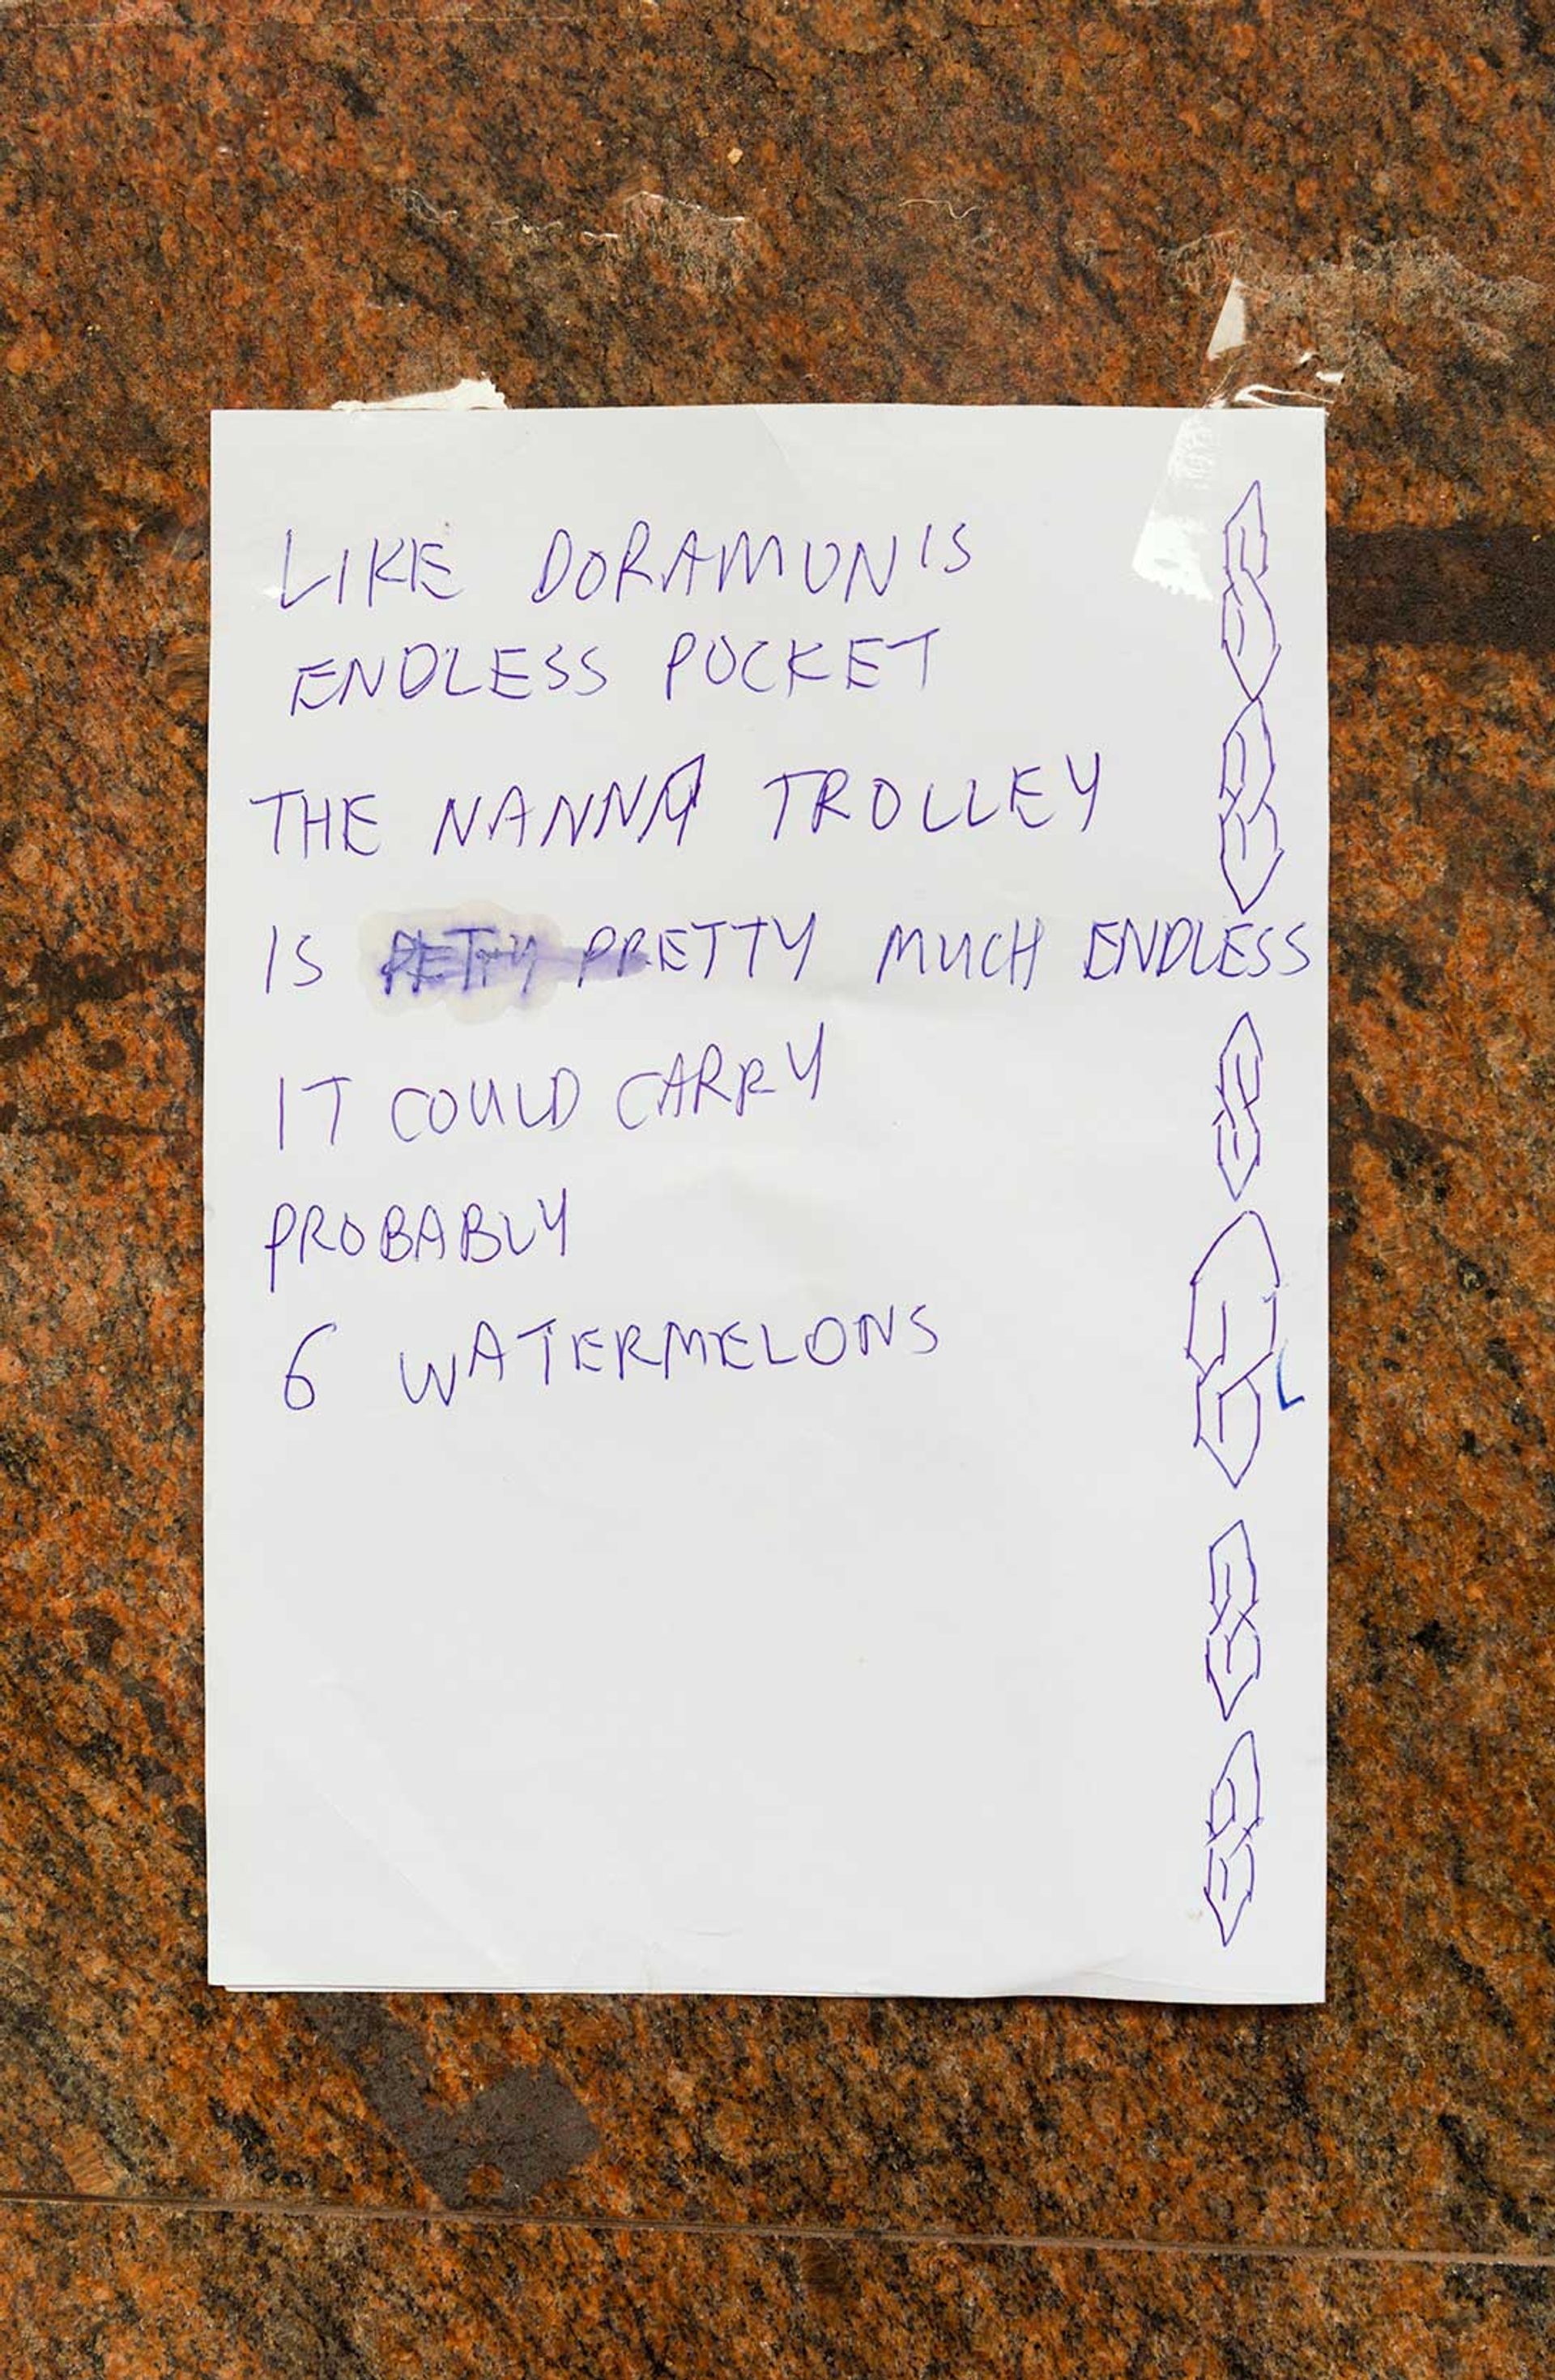 LIKE DORAMUN'S
ENDLESS POCKET
THE NANNA TROLLEY
IS PRETTY MUCH ENDLESS
IT COULD CARRY
PROBABLY
6 WATERMELONS